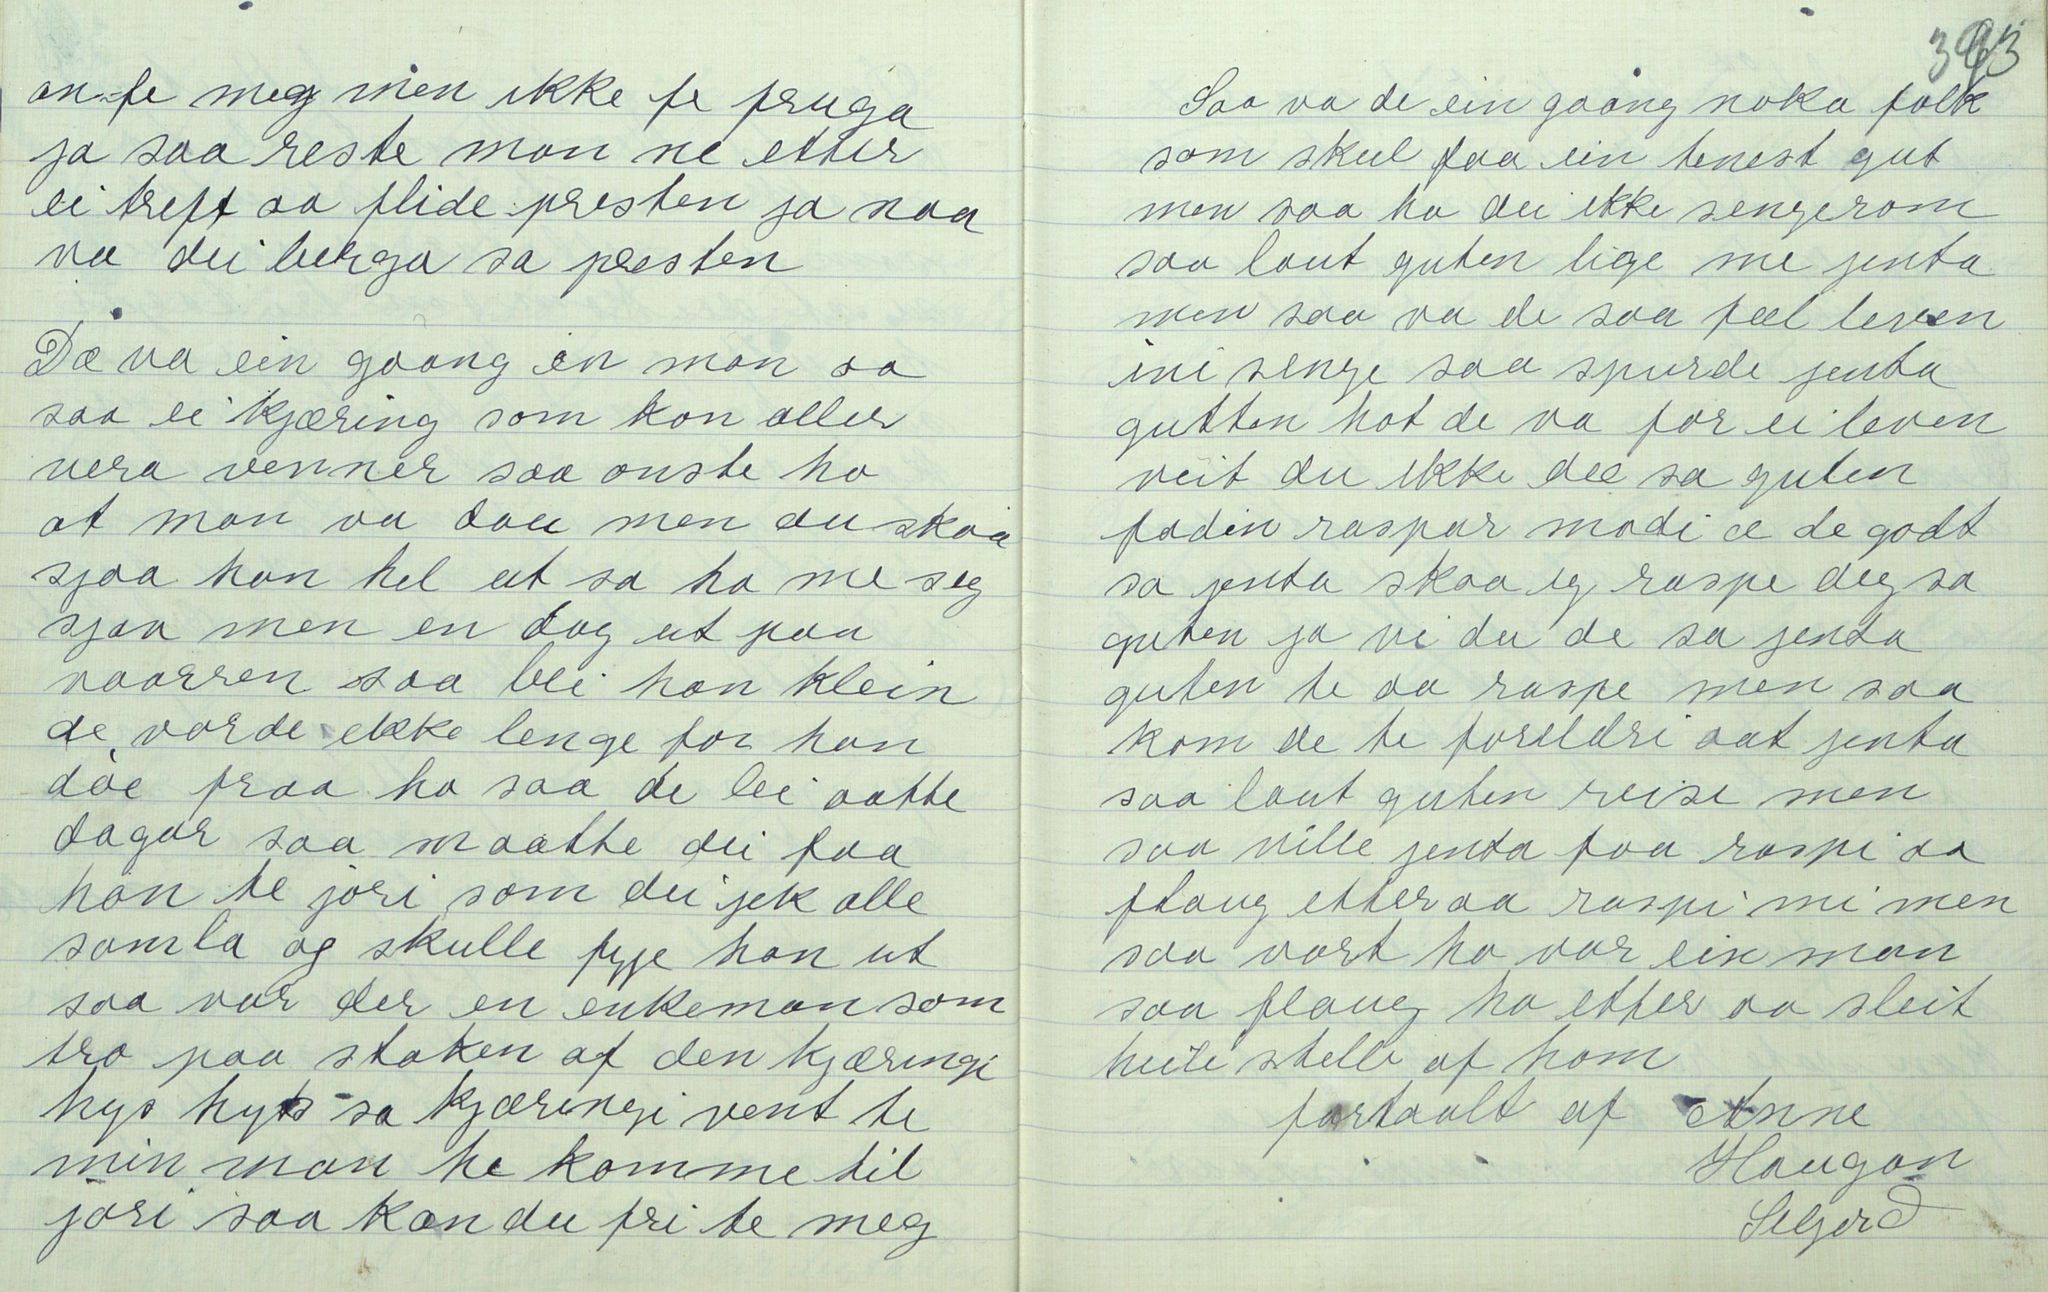 an te meg men ikke te fruga
ja saa reste man ne etter
ei treft aa flide presten ja naa
va dei berga sa presten
Dæ va ein goong en man aa
saa ei kjæring som kon aller
vera venner saa onste ho
at man va dau men du skaa
sjaa han hel ut sa ho me seg
sjøa men en dag ut paa
vaarren saa blei han klein
de varde ekke lenge for han
døe fraa ho saa de lei aatte
dagar saa maatte dei faa
han te jori som dei jek alle
samla og skulle fyje han ut
saa var der en enkeman som
tra paa staken af den kjæringi
hys hyts sa kjæringi vent te
min man he komme til
jori saa kan du fri te meg
393
Saa va de ein goong noka folk
som skul faa ein tenest gut
men saa ha dei ikke sengerom
saa laut guten lige me jenta
men saa va de saa fæl leven
ini senge saa spurde jenta
gutten hot de va for ei leven
veit du ikke dee sa guten
fadin raspar modi æ de godt
sa jenta skaa eg raspe deg sa
guten ja vi du de sa jenta
guten te aa raspe men saa
kom de te foreldri aat jenta
saa laut guten reise men
saa ville jenta faa raspi aa
flaug etter aa raspi mi men
saa vart ho var ein man
saa flaug ho etter aa sleit
heile stelle af hom
fortaalt af Anne
Haugan
Seljord